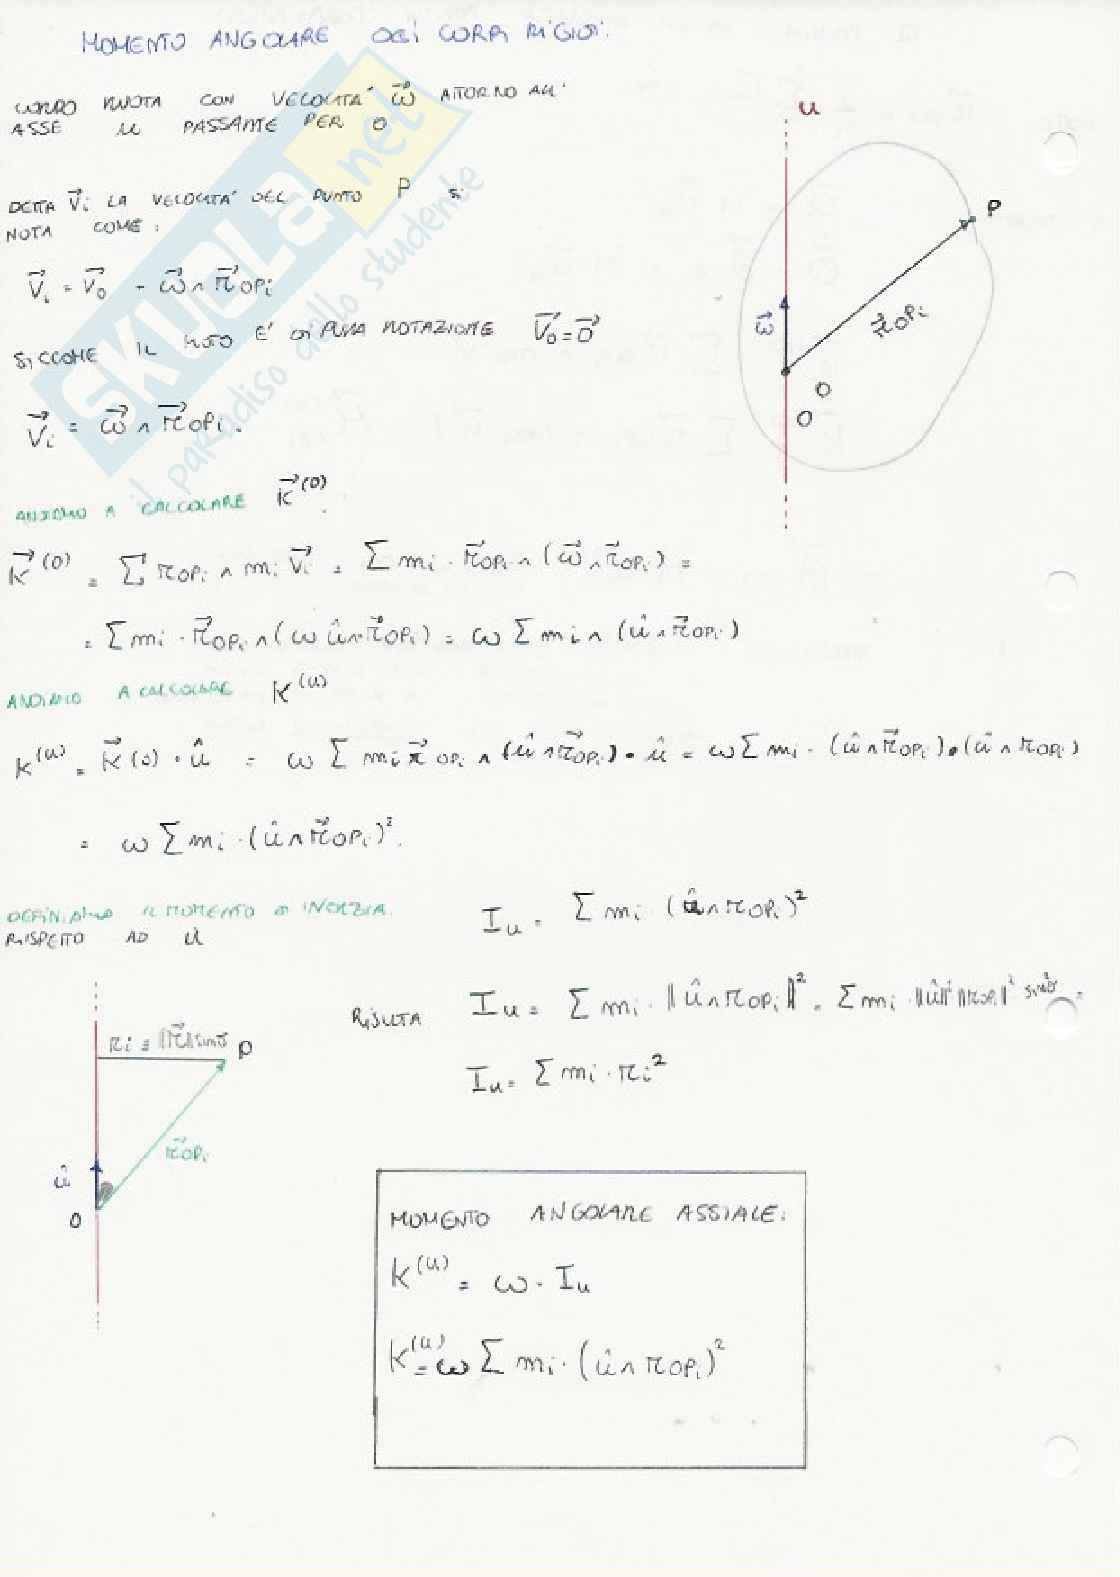 MOMENTO ANGOLARE DEI CORPI RIGIDI.
CORPO RUOTA CON VELOCITA' ω⃗ ATORNO ALL'
ASSE u PASSANTE PER O
DETTA v⃗i LA VELOCITA' DEL PUNTO P SI
NOTA COME:
v⃗i = v⃗o - ω⃗ ∧ r⃗OPi
SICCOME IL MOTO E' DI PURA ROTAZIONE v⃗o = 0⃗
v⃗i = ω⃗ ∧ r⃗OPi.
u
P
ω⃗
r⃗OPi
O
O
ANDIAMO A CALCOLARE K⃗(O).
K⃗(O) = Σ rOPi ∧ mi v⃗i = Σ mi · r⃗OPi ∧ (ω⃗ ∧ r⃗OPi) =
= Σ mi · r⃗OPi ∧ (ω û ∧ r⃗OPi) = ω Σ mi ∧ (û ∧ r⃗OPi)
ANDIAMO A CALCOLARE K(u)
K(u) = K⃗(O) · û = ω Σ mi r⃗OPi ∧ (û ∧ r⃗OPi) · û = ω Σ mi · (û ∧ r⃗OPi) · (û ∧ rOPi)
= ω Σ mi · (û ∧ r⃗OPi)².
DEFINIAMO IL MOMENTO DI INERZIA
RISPETTO AD û
Iu = Σ mi · (û ∧ rOPi)²
RISULTA Iu = Σ mi · ‖û ∧ rOPi‖² = Σ mi · ‖û‖² ‖rOPi‖² sin²θ =
Iu = Σ mi · ri²
ri = ‖r⃗‖ sinθ
P
r⃗OPi
û
O
MOMENTO ANGOLARE ASSIALE:
K(u) = ω · Iu
K(u) = ω Σ mi · (û ∧ rOPi)²
SKUOLA.net
il paradiso dello studente